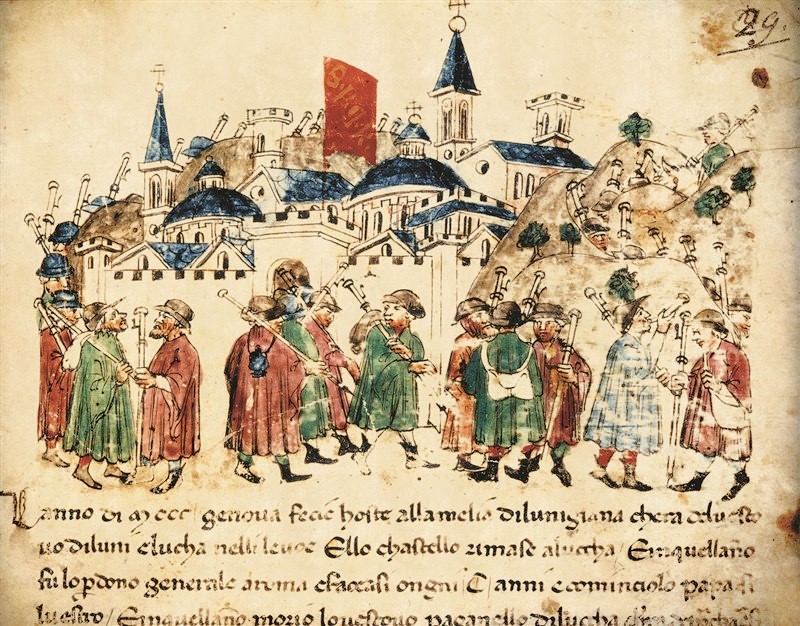 29.
S.P.Q.R.
Lanno di MCCC genova fecie hoste allamelia dilunigiana chera deluesco
uo diluni elucha nelli leuoe Ello chastello rimase aluccha / Einquellano
fu lo pdono generale aroma efaccasi ongni C anni ecominciolo papa si
luestro / Einquellano morio louescouo paganello dilucha